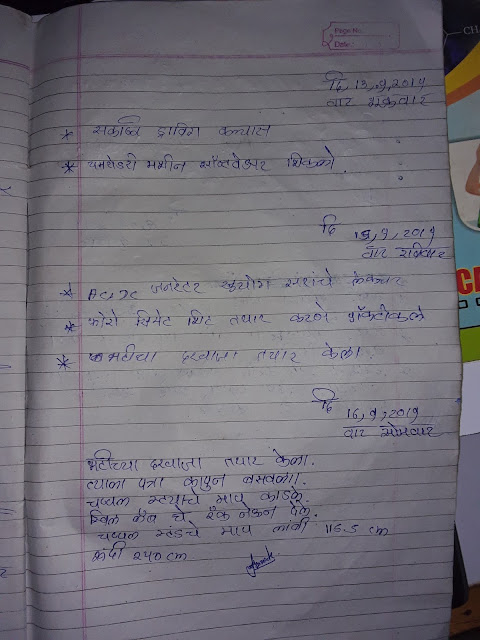 Page No.
Date:
CH
दि, 13,9,2019
वार शुक्रवार
* सकाळि ड्राविंग कल्यास
* एमवेडरी मशीन सॉफ्टवेअर शिकलो.
दि 15,9,2019
वार रविवार
* AC, DC जनरेटर सुयोग सरांचे लेक्चर
* फोरो सिमेट शिट तयार करणे प्रॅक्टीकल
* भट्टीचा दरवाजा तयार केला.
दि 16,9,2019
वार सोमवार
भट्टीच्या दरवाजा तयार केला.
त्याला पत्रा कापुन बसवला.
चप्पल स्टँडचे माप काढले.
लॅब चे रॅक नेऊन देले.
चप्पल स्टंडचे माप लांबी 116.5 cm
रुंदी 240 cm